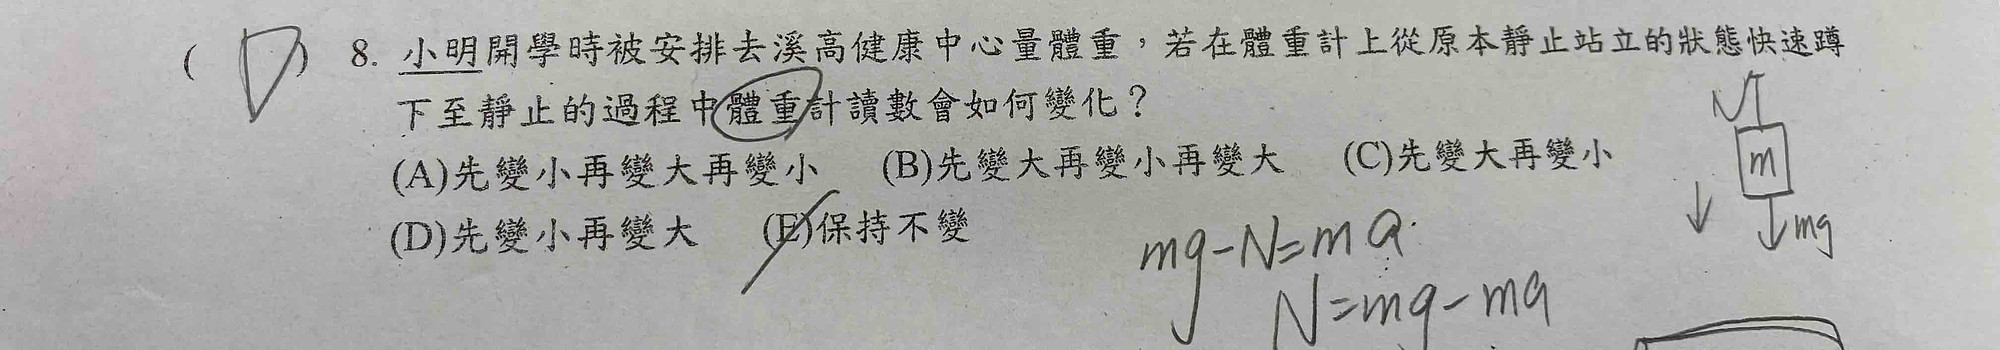 ( D ) 8. 小明開學時被安排去溪高健康中心量體重，若在體重計上從原本靜止站立的狀態快速蹲
下至靜止的過程中體重計讀數會如何變化？
(A)先變小再變大再變小 (B)先變大再變小再變大 (C)先變大再變小
(D)先變小再變大 (E)保持不變
N
m
mg
mg-N=ma
N=mg-ma